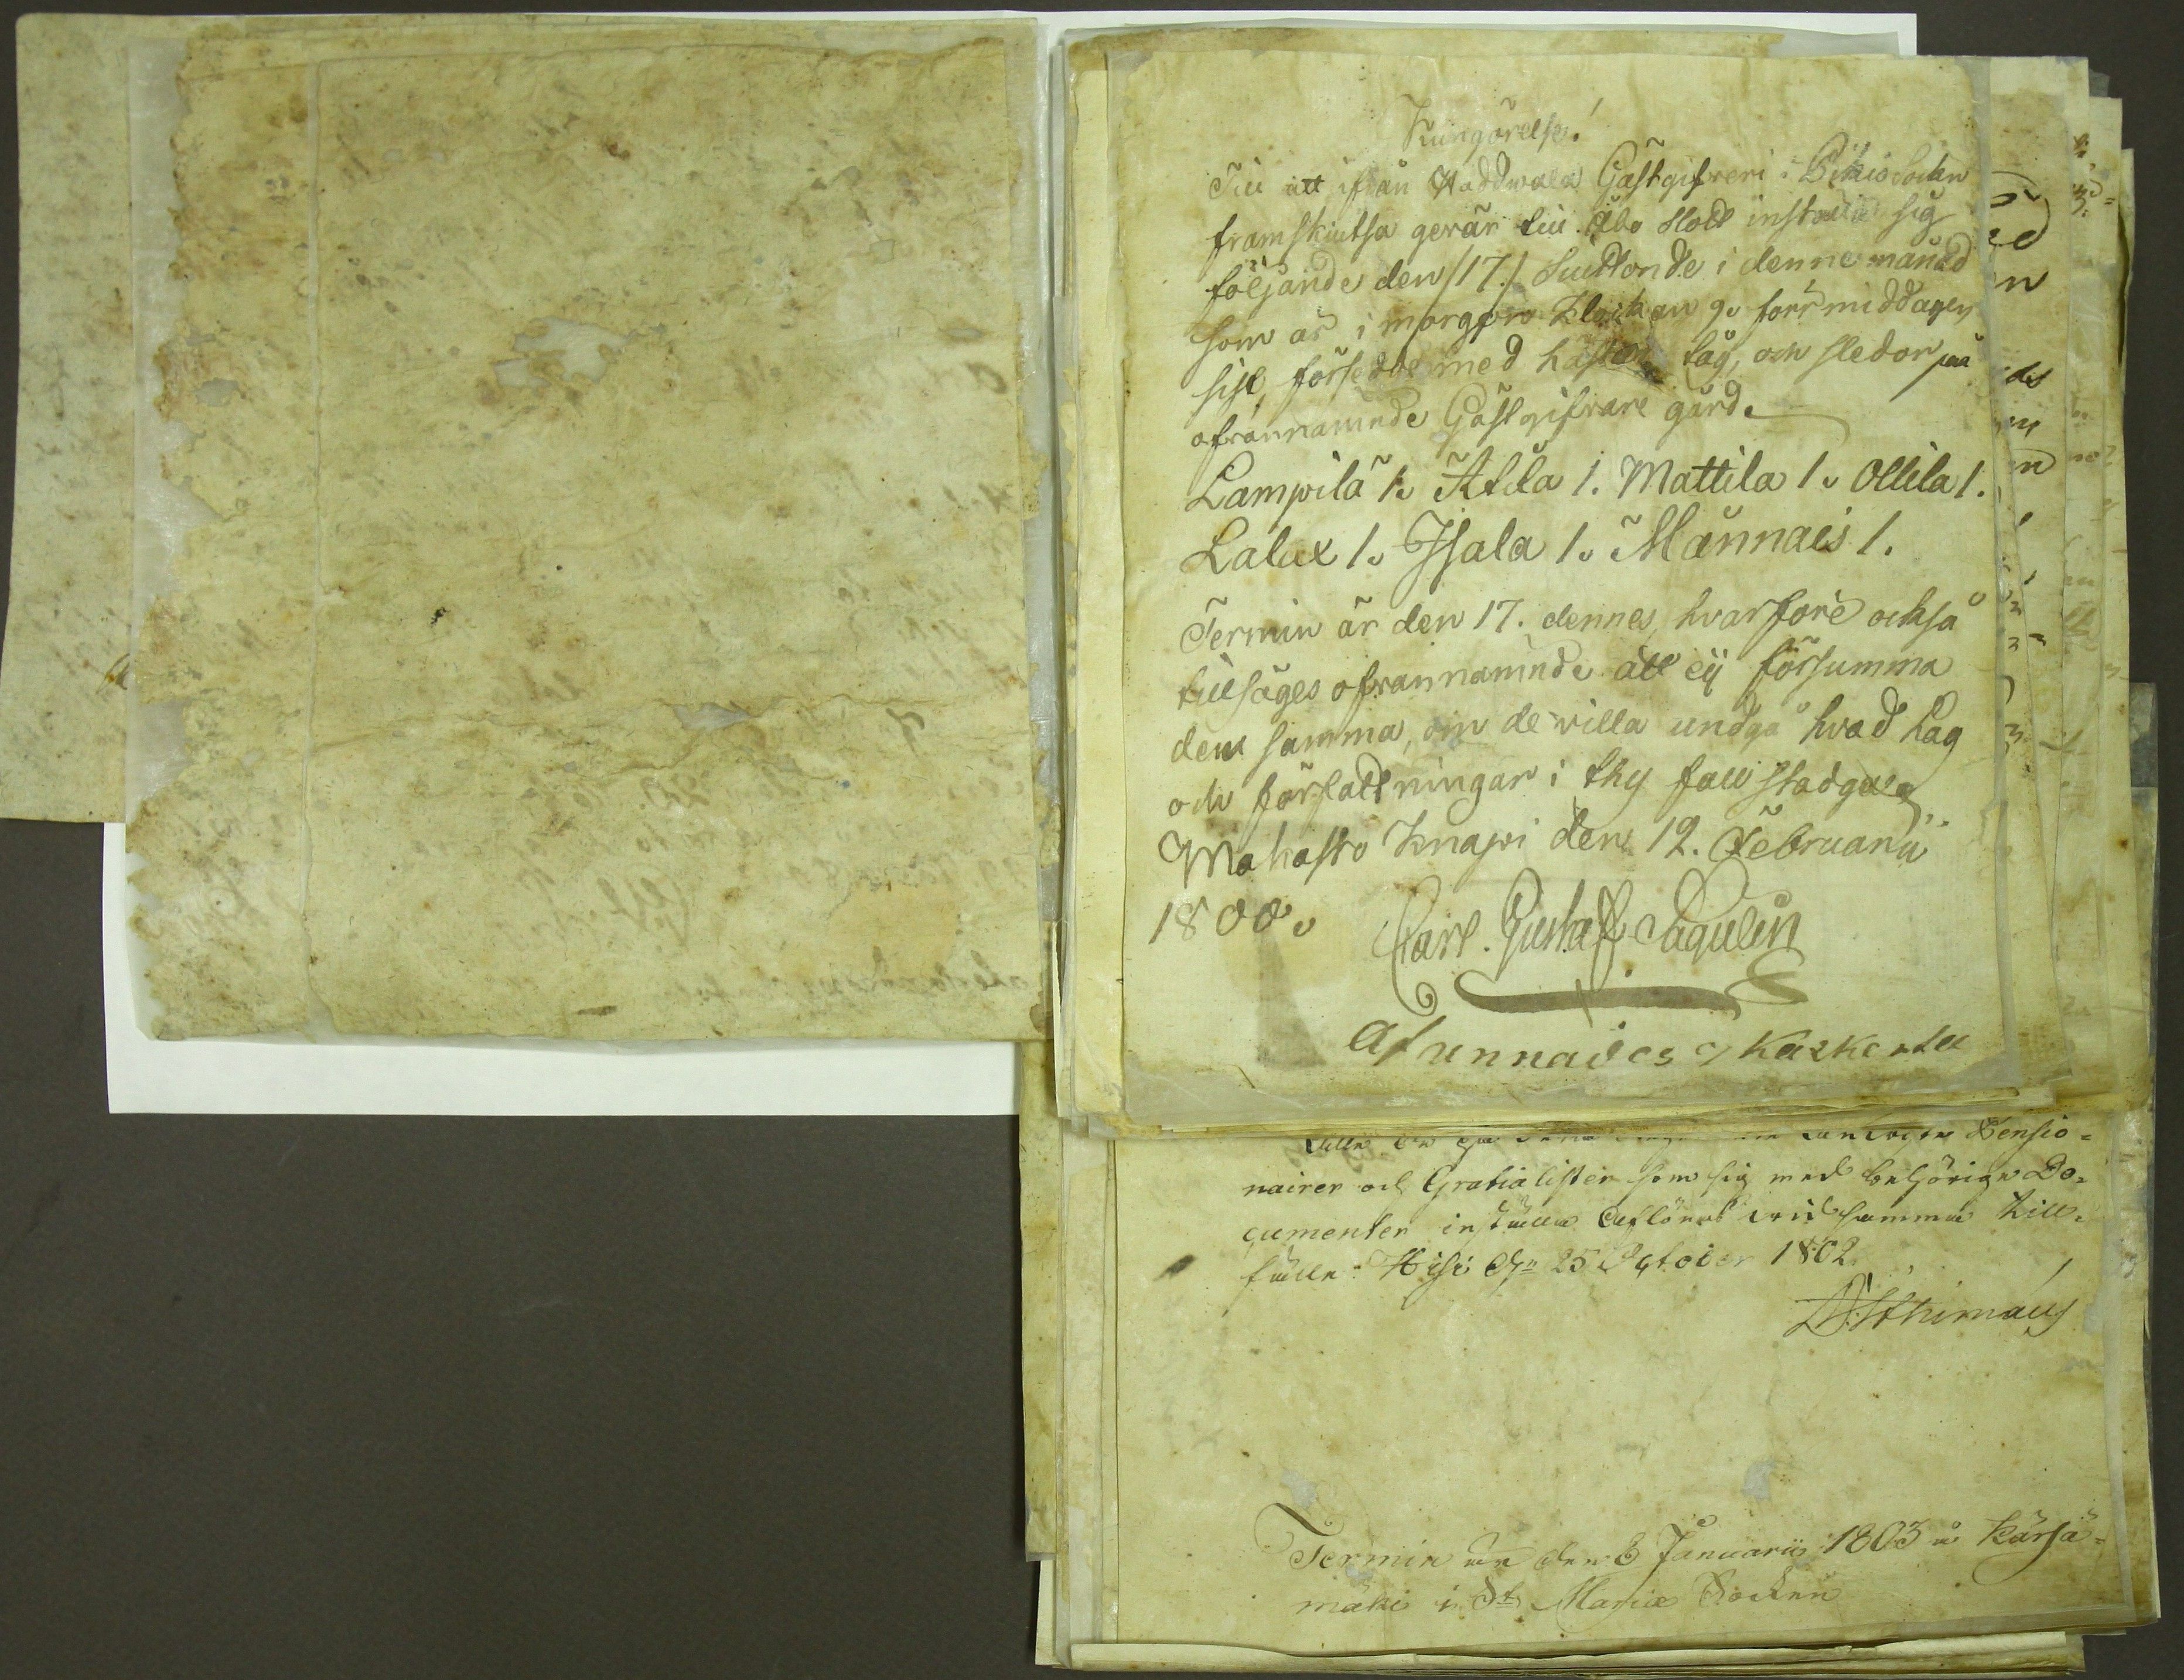 Kungörelse!
Till att ifrån Haddwala Gästgifveri i Pikis Sochn
framskiutsa gevär till Åbo Slott inställe sig
följande den /17./ Siuttonde i denne månad
som är i morgon Klockan 9. förr middagen
sist, försedde med hästar tåg, och sledor på
ofvannämnde Gästgifvare gård.
Lampila 1. Atila 1. Mattila 1. Ollila 1.
Lalax 1. Isala 1. Männais 1.
Termin är den 17. dennes, hvarföre också
tillsäges ofvannämnde att eij försumma
den samma, om de villa undgå hvad Lag
och författningar i thy fall stadga.
Makasto Knapi den 12. Februarii
1800. Carl Gustaff Pagulin
Afunnades Kaskertu
Pensio=
nairer och Gratialister som sig med behörige Do=
cumenter inställa aflönas vid samma till=
fälle. Hisi den 25 October 1802.
Termin är den 8 Januarii 1803 å Kärsä=
mäki i St Mariæ Socken